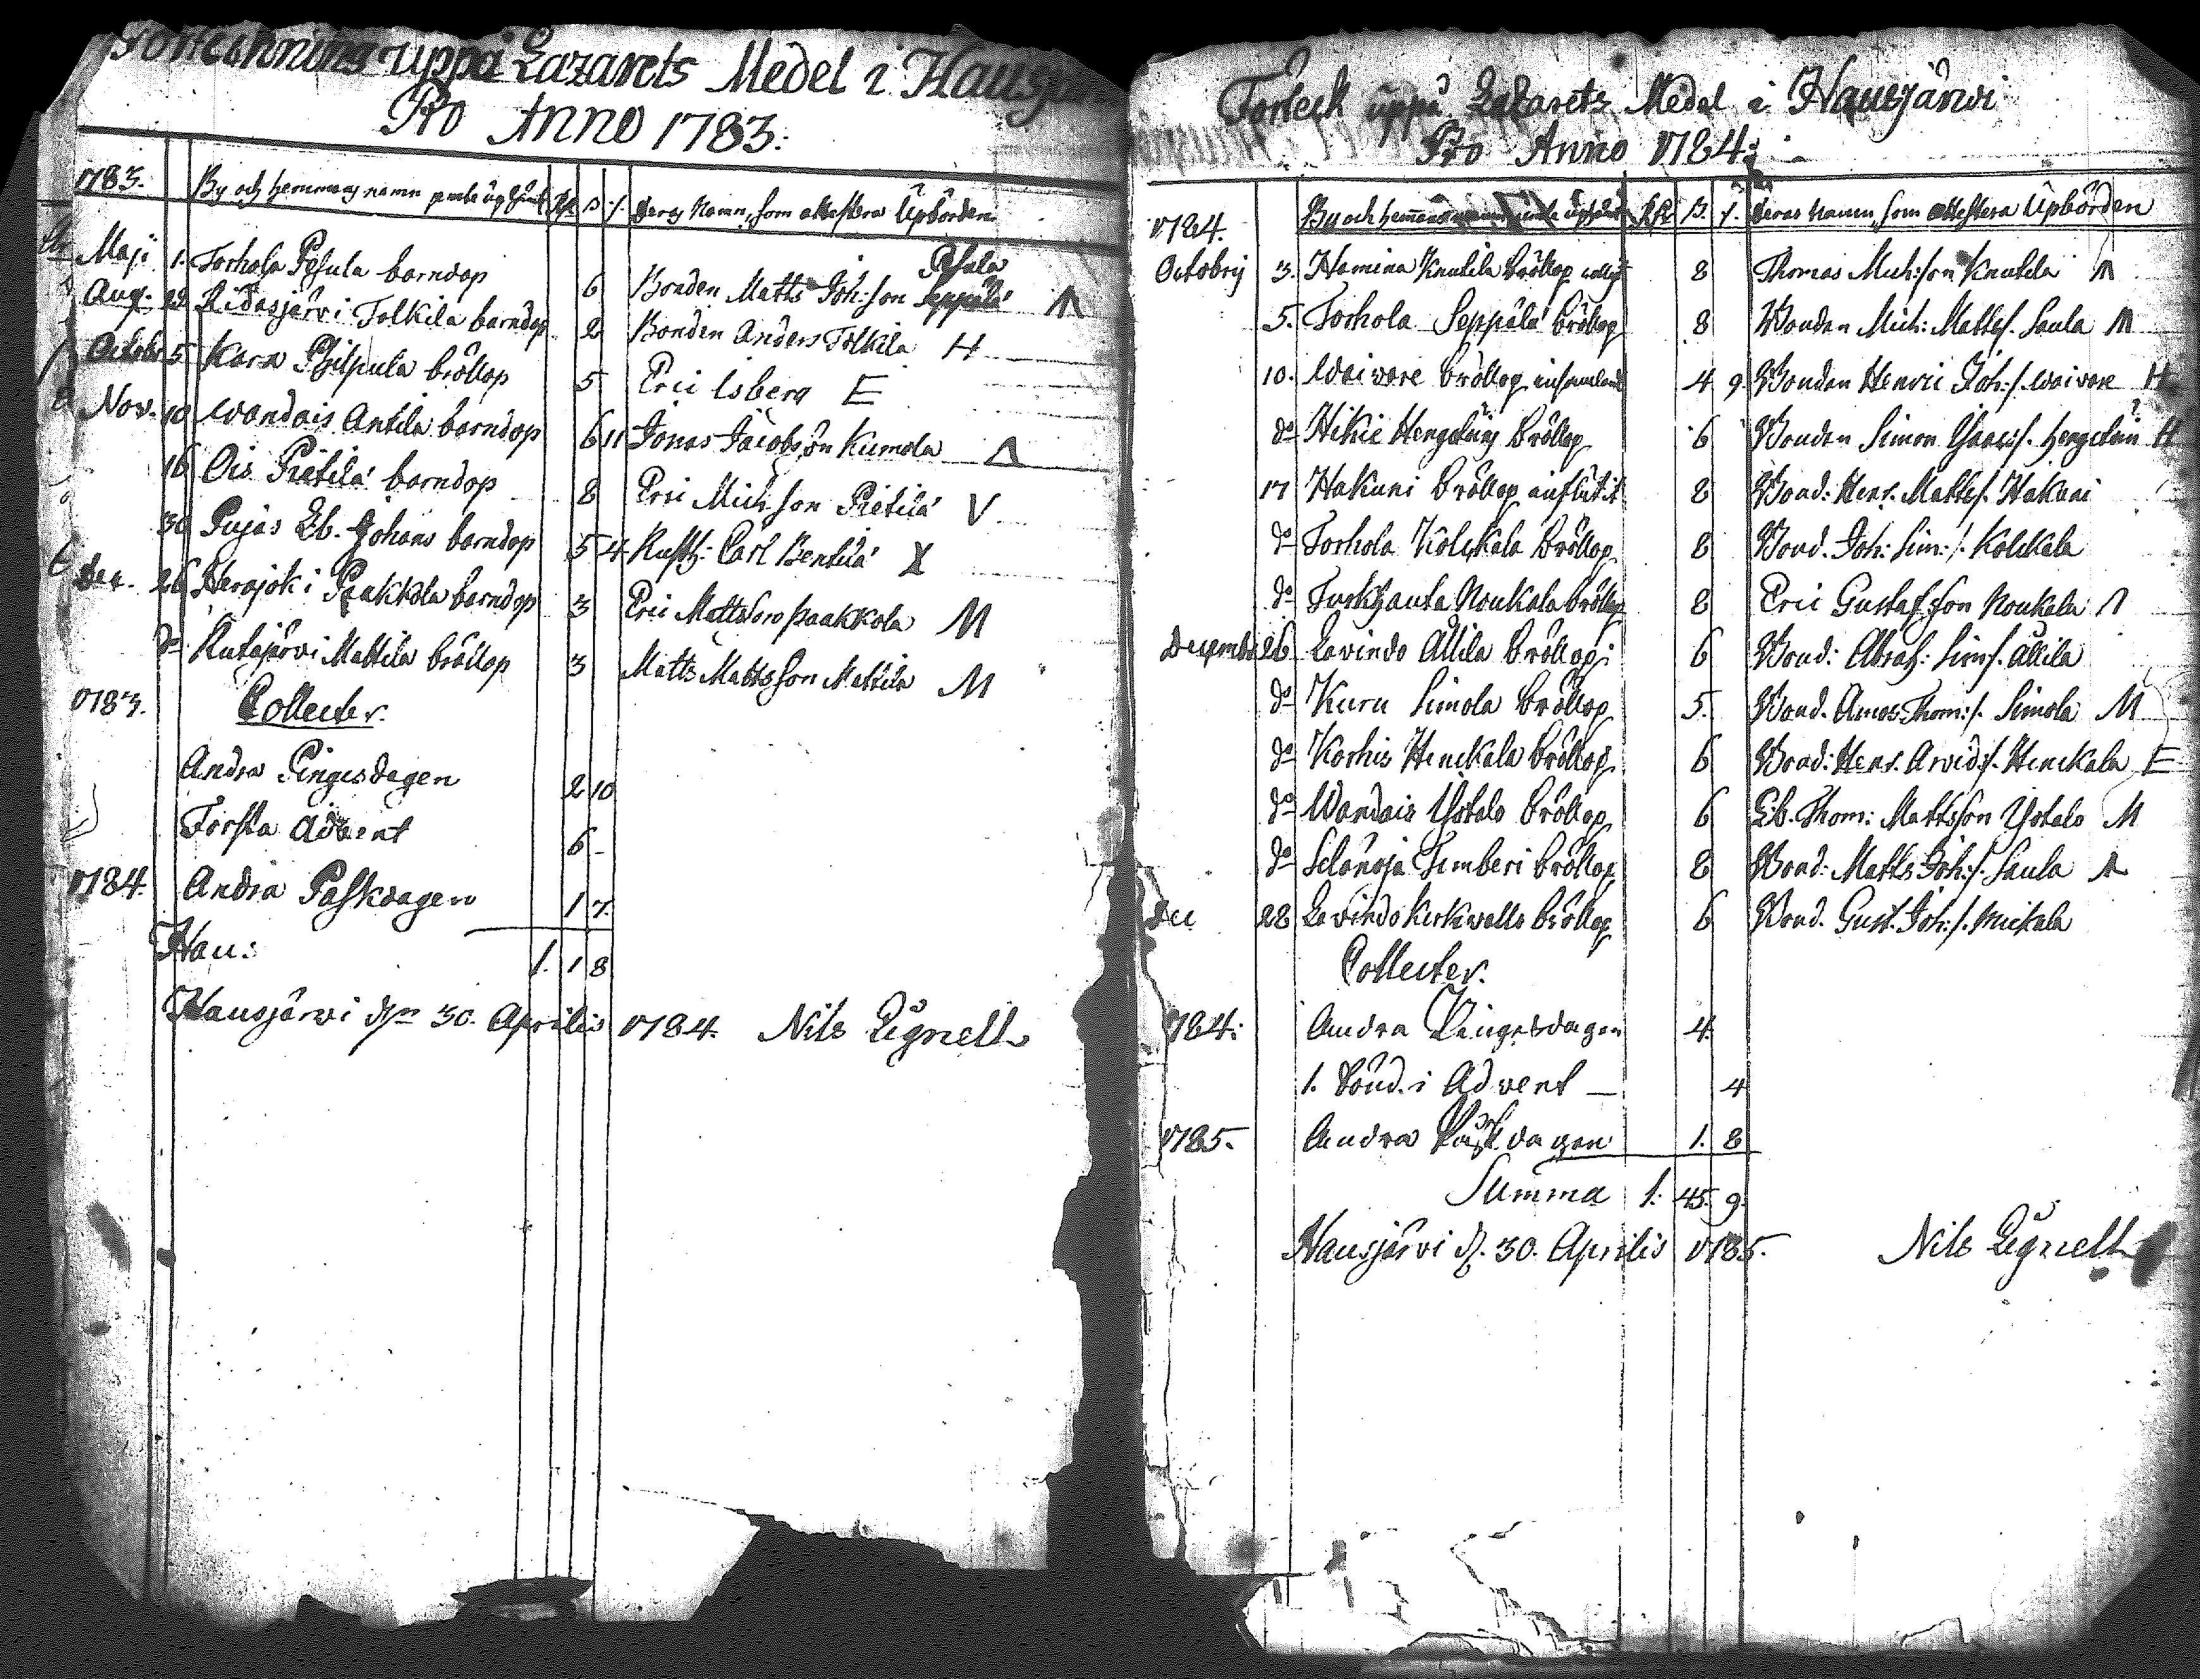 Förteckning uppå Lazarets Medel i Hausjärvi
Pro Anno 1783:
1783. By och hemmans namn Rd ß /. deras Namn, som attestera Upbörden
Maji 1. Torhola Pesula barndop 6 Bonden Matts Joh:son Seppälä Pesula
Aug: 22 Ridasjärvi Tolkila barndop 2 Bonden Anders Tolkila H
Octobr 5 Kara Philpula bröllop 5 Eric Isberg E
Nov. 10 Wandais Antila barndop 6 11 Jonas Jacobsson Kumola
16 Ois Pietilä barndop 8 Eric Mich.son Pietilä V
30 Pujas Lb. Johans barndop 5 4 Rusth: Carl Bentilä X
Dec. 26 Herajoki Paakkola barndop 3 Eric Mattsson Paakkola M
do Rutajärvi Mattila bröllop 3 Matts Mattsson Mattila M
1783. Collecter.
Andra Pingesdagen 2 10
Första Advent 6 -
1784. Andra Paskdagen 1 7.
Hau: 1. 1 8
Hausjärvi d. 30. Aprilis 1784. Nils Lignell
Förteck uppå Lazarets Medel i Hausjärvi
Pro Anno 1784:
1784. By och hemmans namn Rd ß. /. deras namn, som attestera Upbörden
Octobrij 3. Hamina Knutila bröllop 8 Thomas Mich:son Knutila
5. Torhola Seppälä bröllop 8 Bonden Mich: Matts/. Saula M
10. Waivare bröllop 4 9. Bonden Henric Joh:/. Waivare H
do Hikie bröllop 6 Bonden Simon
17 Hakuni bröllop 8 Bond: Henr. Matts/. Hakuni
do Torhola Kölckälä bröllop 8 Bond. Joh: Sim:/. Kölckälä
do Turkhauta Noukala bröllop 8 Eric Gustafsson Noukala
Decembr 26 Lavindo Allila bröllop: 6 Bond: Abrah: Sim/. Allila
do Kuru Simola bröllop 5. Bond. Amos Thom:/. Simola M
do Karhis Henckala bröllop 6 Bond: Henr. Arvid:/. Henckala E
do Wandais Ystalo bröllop 6 Lb. Thom: Mattsson Ystalo M
do Selänoja Timberi bröllop 8 Bond: Matts Joh:/. Saula
Dec 28 Lavindo bröllop 6 Bond. Gust. Joh:/. Mickala
Collecter.
1784: Andra Pingesdagen 4.
1. Sönd. i Advent — 4
1785. Andra Påskdagen 1. 8
Summa 1: 45. 9.
Hausjärvi d. 30. Aprilis 1785. Nils Lignell